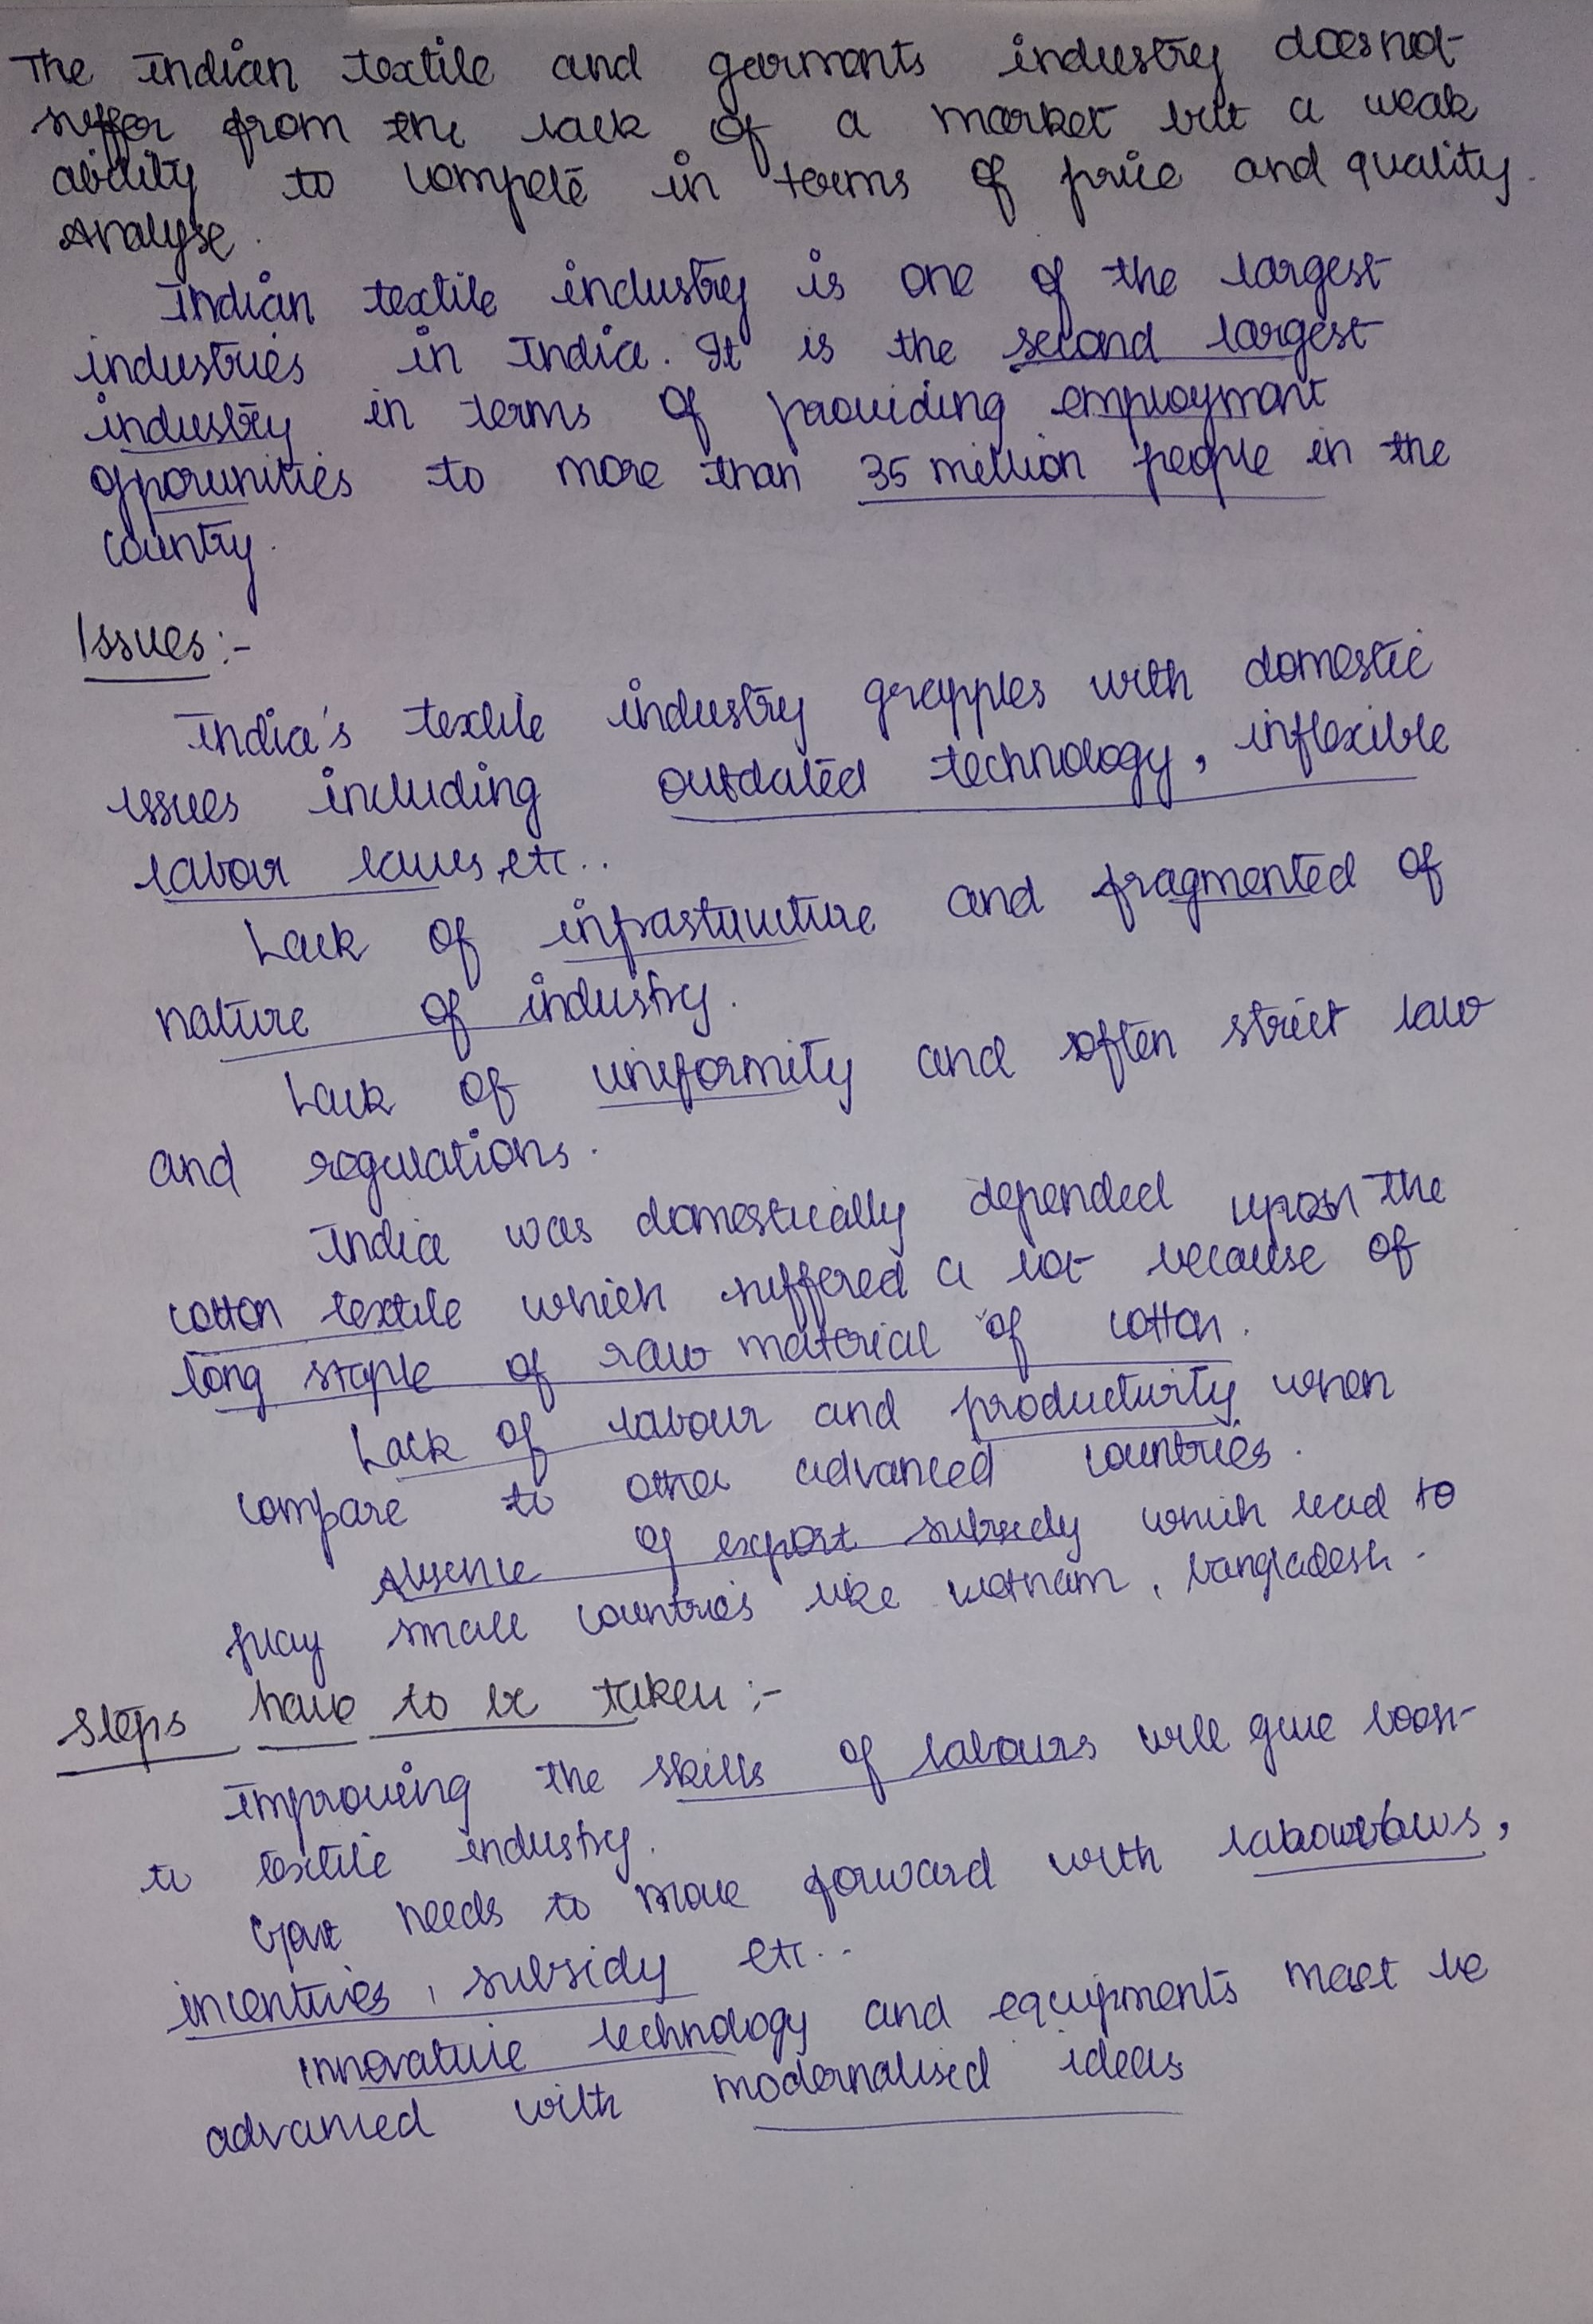 The Indian textile and garments industry doesnot
suffer from the lack of a market but a weak
ability to compete in terms of price and quality.
Analyse.
Indian textile industry is one of the largest
industries in India. It is the second largest
industry in terms of providing employment
opporunities to more than 35 million people in the
country.
Issues:-
India's textile industry grapples with domestic
issues including outdated technology, inflexible
labour laws, etc..
Lack of infrastructure and fragmented of
nature of industry.
Lack of uniformity and often strict law
and regulations.
India was domestically depended upon the
cotton textile which suffered a lot because of
long staple of raw material of cotton.
Lack of labour and productivity when
compare to other advanced countries.
Absence of export subsidy which lead to
play small countries like vietnam, bangladesh.
Steps have to be taken:-
Improving the skills of labours will give boost
to textile industry.
Govt needs to move forward with labour laws,
incentives, subsidy etc..
Innovative technology and equipments must be
advanced with modernalised ideas